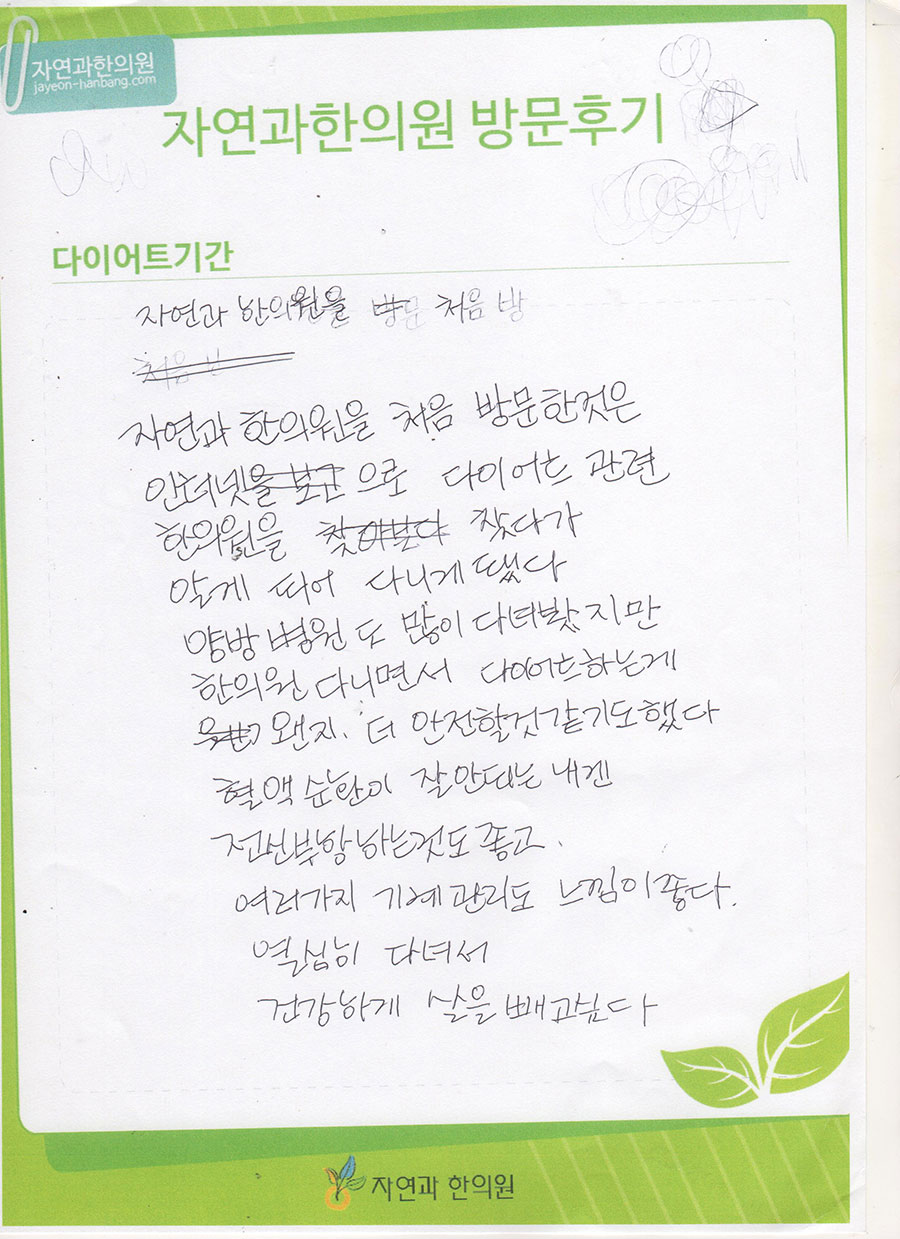 자연과한의원
jayeon-hanbang.com
자연과한의원 방문후기
다이어트기간
자연과 한의원을 방문 처음 방
처음 방
자연과 한의원을 처음 방문한것은
인터넷을 보고 으로 다이어트 관련
한의원을 찾아보다 찾다가
알게 되어 다니게 됐다
양방 병원 도 많이 다녀봤지만
한의원 다니면서 다이어트하는게
왠지. 더 안전할것같기도했다
혈액 순환이 잘안되는 내겐
전신부항 하는것도 좋고.
여러가지 기계관리도 느낌이좋다.
열심히 다녀서
건강하게 살을 빼고싶다
자연과 한의원